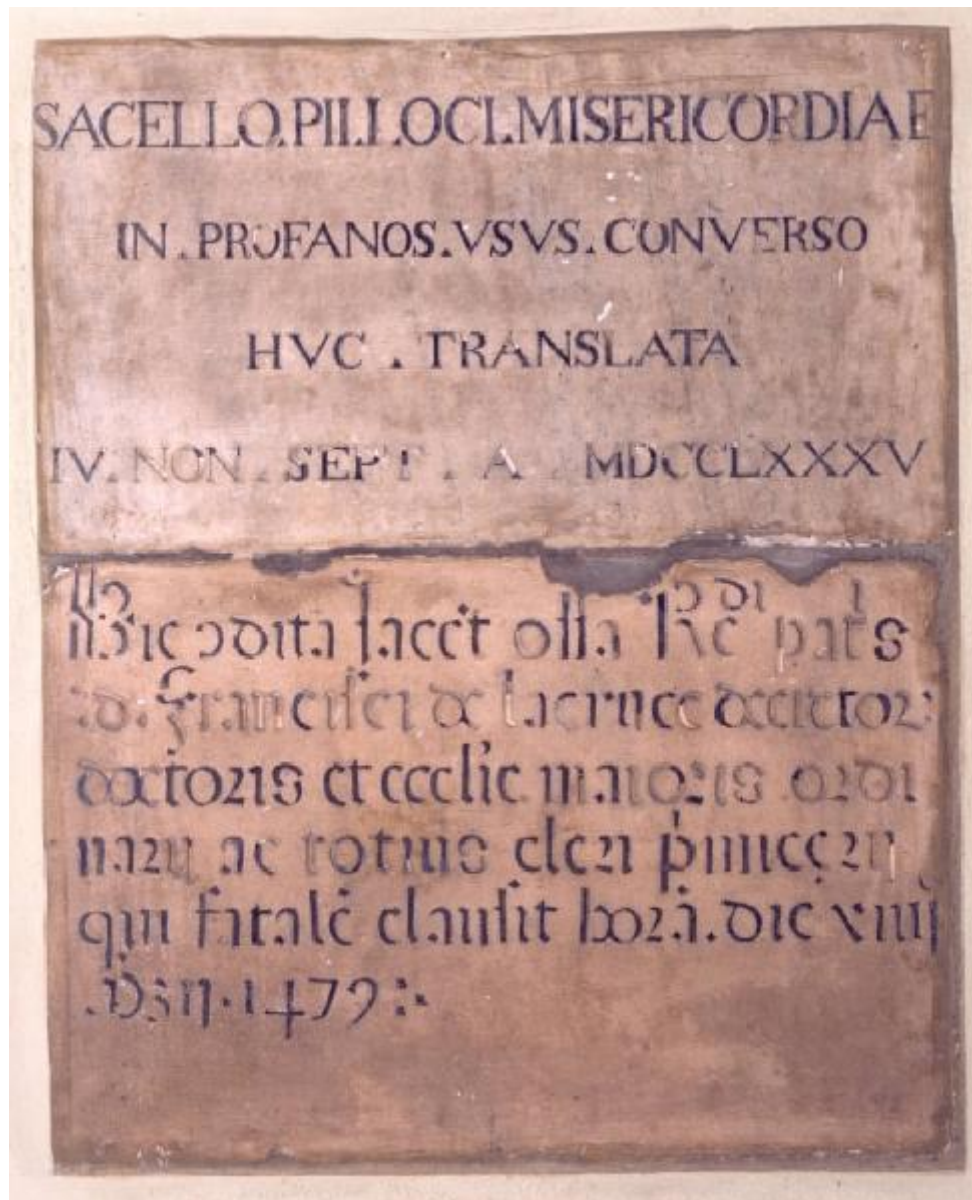 SACELLO.PII.LOCI.MISERICORDIAE
IN.PROFANOS.VSVS.CONVERSO
HVC.TRANSLATA
IV.NON.SEPT.A MDCCLXXXV
Hic ↄdita iacēt ossa Rↄdi pat's
.d. Francisci de lacruce decretor:
doctoris et eccl'ie maioris ordi
narij ac totius cleri p̄miçerij
qui fatalē clausit horā. die xiiij
.1479